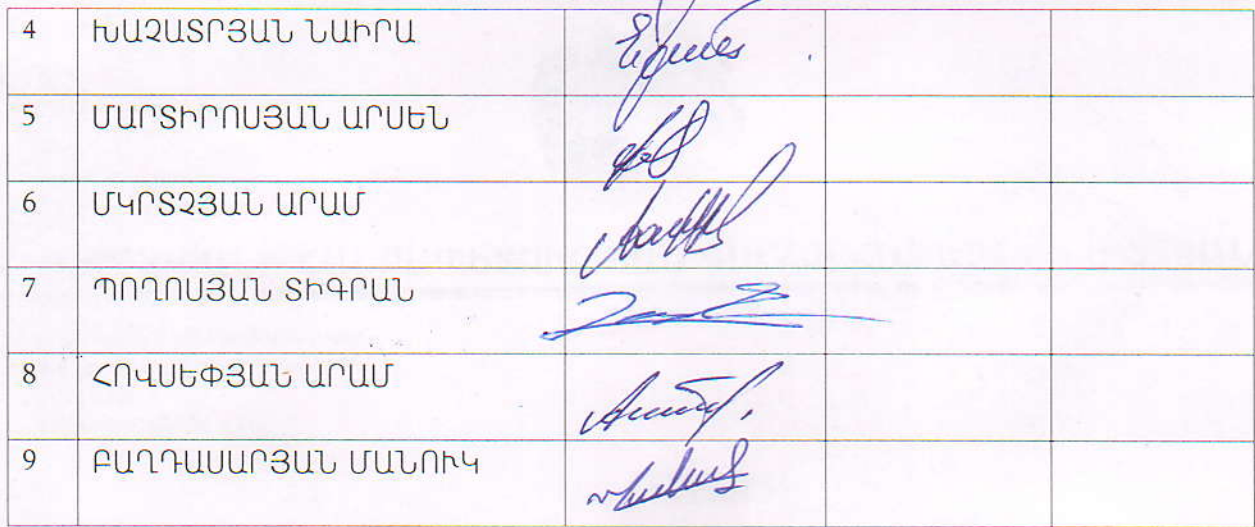 4 ԽԱՉԱՏՐՅԱՆ ՆԱԻՐԱ
5 ՄԱՐՏԻՐՈՍՅԱՆ ԱՐՍԵՆ
6 ՄԿՐՏՉՅԱՆ ԱՐԱՄ
7 ՊՈՂՈՍՅԱՆ ՏԻԳՐԱՆ
8 ՀՈՎՍԵՓՅԱՆ ԱՐԱՄ
9 ԲԱՂԴԱՍԱՐՅԱՆ ՄԱՆՈՒԿ